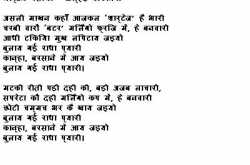 असली माखन कहाँ आजकल 'शार्टेज' है भारी
चरबी वारौ 'बटर' मलिंगो फ्रजि में, हे बनवारी
आधी टकिया मुख लपिटाय जइयो
बुलाय गई राधा प्यारी
कान्हा, बरसाने में आय जइयो
बुलाय गई राधा प्यारी।
मटकी रीती पड़ी दही की, बड़ी अजब लाचारी,
सपरेटा कौ दही मलिंगो कप में, हे बनवारी
छोटी चम्मच भर कै खाय जइयो
बुलाय गई राधा प्यारी
कान्हा, बरसाने में आय जइयो
बुलाय गई राधा प्यारी।